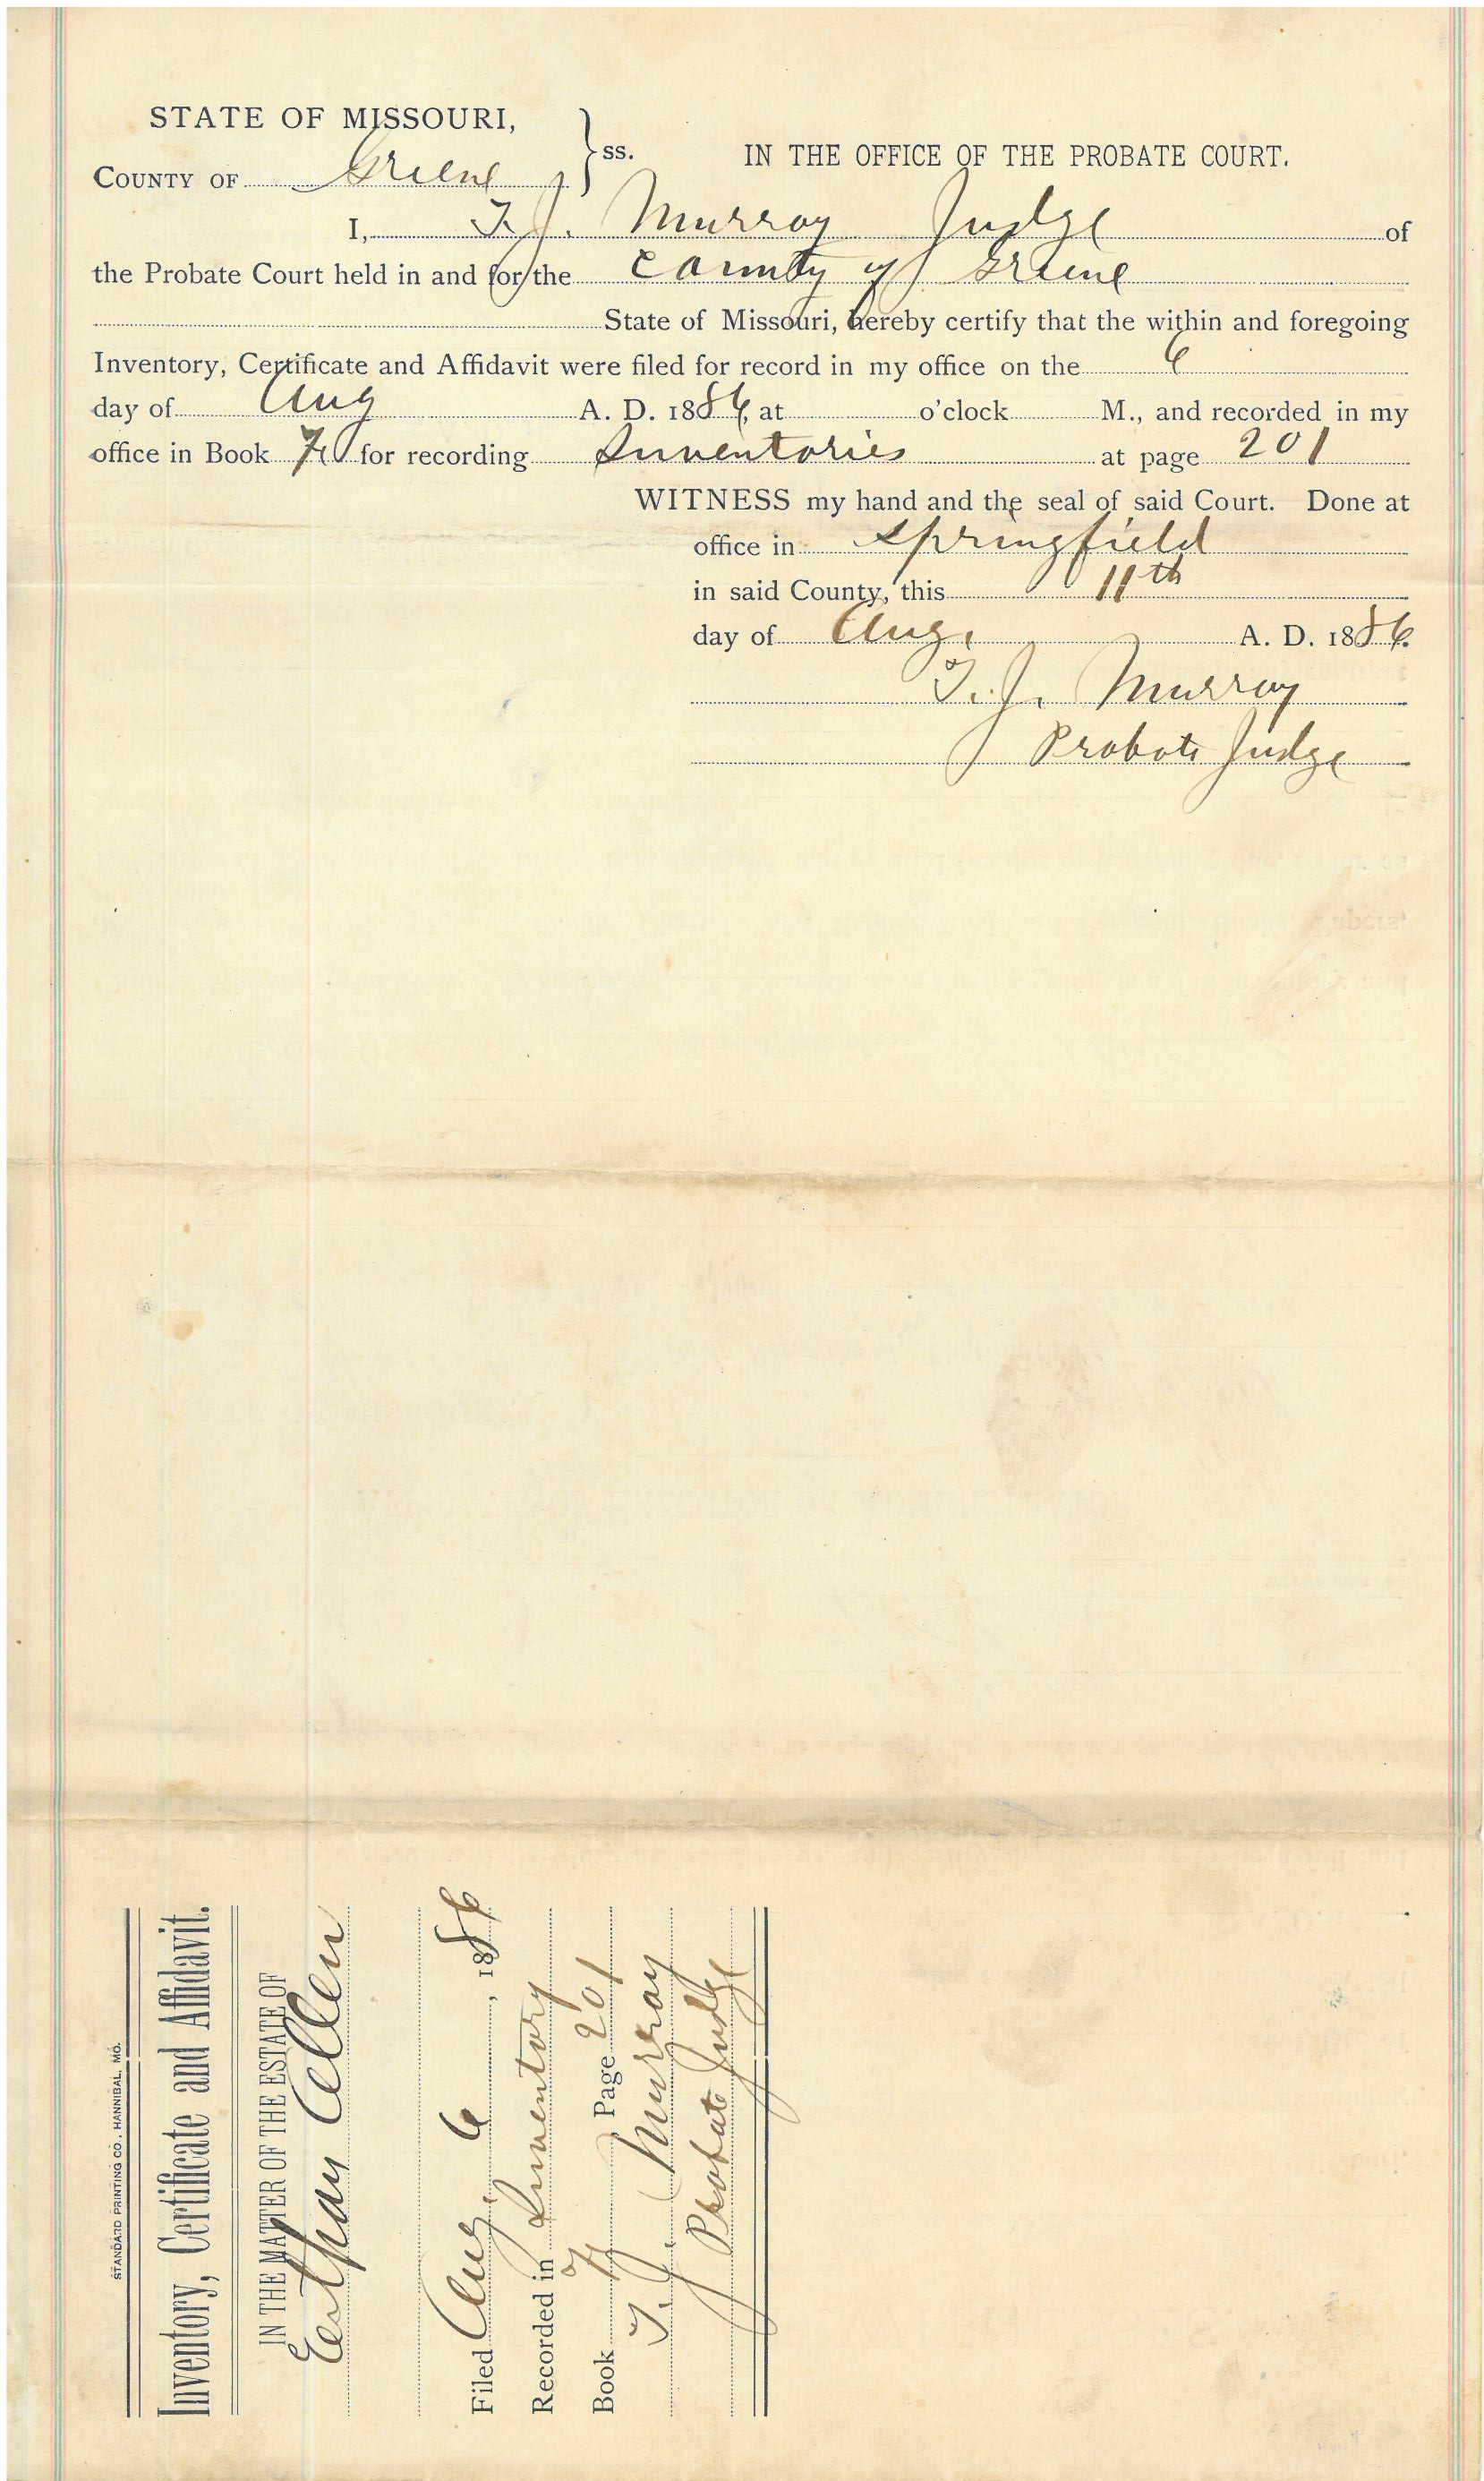 STATE OF MISSOURI,
COUNTY OF Greene } ss. IN THE OFFICE OF THE PROBATE COURT.
I, T. J. Murray Judge of
the Probate Court held in and for the County of Greene
State of Missouri, hereby certify that the within and foregoing
Inventory, Certificate and Affidavit were filed for record in my office on the 6
day of Aug A. D. 1886, at o'clock M., and recorded in my
office in Book for recording Inventories at page 201
WITNESS my hand and the seal of said Court. Done at
office in Springfield
in said County, this 11th
day of Aug. A. D. 1886.
T. J. Murray
Probate Judge
STANDARD PRINTING CO., HANNIBAL, MO.
Inventory, Certificate and Affidavit.
IN THE MATTER OF THE ESTATE OF
Allen
Filed Aug. 6, 1886
Recorded in Inventory
Book , Page 201
T. J. Murray
Probate Judge